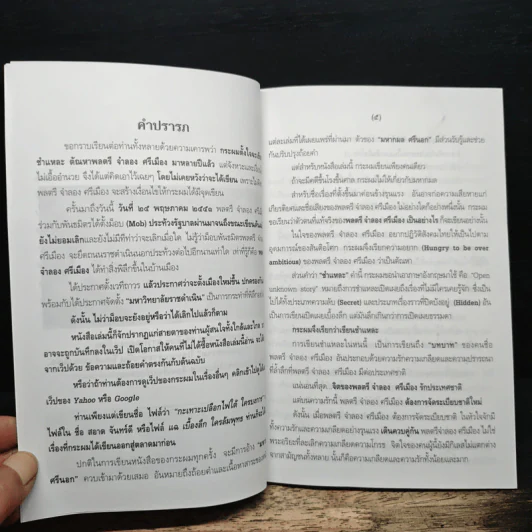 คำปรารภ
ขอกราบเรียนต่อท่านทั้งหลายด้วยความเคารพว่า กระผมตั้งใจจะ
ชำแหละ ตัณหาพลตรี จำลอง ศรีเมือง มาหลายปีแล้ว แต่จังหวะและ
ไม่เอื้ออำนวย จึงได้แต่คิดเอาไว้เฉยๆ โดยไม่เคยหวังว่าจะได้เขียน
พลตรี จำลอง ศรีเมือง จะสร้างเงื่อนไขให้กระผมได้มีจุดเขียน
ครั้นมาถึงวันนี้ วันที่ ๒๕ พฤษภาคม ๒๕๕๑ พลตรี จำลอง
ร่วมกับพันธมิตรได้ตั้งม็อบ (Mob) ประท้วงรัฐบาลผ่านมาจนถึงขณะเขียนต้น
ยังไม่ยอมเลิกและยังไม่มีทีท่าว่าจะเลิกเมื่อใด ไม่รู้ว่าม็อบพันธมิตร
ศรีเมือง จะยึดถนนราชดำเนินนอกประท้วงต่อไปอีกนานเท่าใด
จำลอง ศรีเมือง ได้ทำสิ่งพิลึกขึ้นในบ้านเมือง
ได้ประกาศตั้งเวทีถาวร แล้วประกาศว่าจะตั้งเมืองใหม่ขึ้น
พร้อมกับได้ประกาศจัดตั้ง "มหาวิทยาลัยราชดำเนิน" เป็นการกระทำที่
ดังนั้น ไม่ว่าม็อบจะยังอยู่หรือว่าได้เลิกไปแล้วก็ตาม
หนังสือเล่มนี้ก็จักปรากฏแก่สายตาของท่านผู้สนใจทั้งใกล้และไกล
อาจจะถูกบันทึกลงในเว็ป เปิดโอกาสให้คนที่ไม่ได้ซื้อหนังสือเล่มนี้อ่าน
จากเว็ปด้วย ข้อความและถ้อยคำตรงกันกับต้นฉบับ
หรือว่าถ้าท่านต้องการดูเว็ปของกระผมในเรื่องอื่นๆ คลิกเข้าไป
เว็ปของ Yahoo หรือ Google
ท่านเพียงแต่เขียนชื่อ ไฟล์ว่า "กะเทาะเปลือกไฟใต้ ใครบงการ"
ไฟล์ใน ชื่อ สอาด จันทร์ดี หรือไฟล์ แฉ เบื้องลึก ใครล้มพุทธ
เรื่องที่กระผมได้เขียนออกสู่ตลาดมาก่อน
ปกติในการเขียนหนังสือของกระผมทุกครั้ง จะมีการอ้าง
ศรีนอก" ควบเข้ามาด้วยเสมอ อันหมายถึงถ้อยคำและเนื้อหาสาระของ
(๕)
แต่ละเล่มที่ได้เผยแพร่ที่ผ่านมา ตัวของ "มหากมล ศรีนอก" มีส่วนรับรู้และช่วย
กันปรับปรุงถ้อยคำ
แต่สำหรับหนังสือเล่มนี้ กระผมเขียนเพียงคนเดียว
ถ้าจะมีคดีขึ้นโรงขึ้นศาล กระผมจะไม่ให้เกี่ยวกับมหากมล
สำหรับชื่อเรื่องที่ตั้งขึ้นมาค่อนข้างรุนแรง อันอาจก่อความเสียหายแก่
เกียรติยศและชื่อเสียงของพลตรี จำลอง ศรีเมือง ไม่อย่างใดก็อย่างหนึ่งนั้น กระผม
ขอเรียนว่าตัวตนที่แท้จริงของพลตรี จำลอง ศรีเมือง เป็นอย่างไร ก็จะเขียนอย่างนั้น
ในใจของพลตรี จำลอง ศรีเมือง อยากปฏิวัติสังคมไทยให้เป็นไปตาม
อุดมการณ์ของสันติอโศก กระผมจึงเรียกความอยาก (Hungry to be over
ambitious) ของพลตรี จำลอง ศรีเมือง ว่าเป็นตัณหา
ส่วนคำว่า "ชำแหละ" คำนี้ กระผมขอนำเอาภาษาอังกฤษมาใช้ คือ "Open
unknown story" หมายถึงการเปิดเผยถึงเรื่องที่ไม่มีใครเคยรู้จัก ซึ่งเป็น
ไปได้ทั้งประเภทความลับ (Secret) และประเภทเรื่องราวที่ปิดบังอยู่ (Hidden) อัน
เป็นการเขียนเปิดเผยเบื้องลึก แต่มีนัยลึกเกินกว่าการเปิดเผยธรรมดา
กระผมจึงเรียกว่าเขียนชำแหละ
การเขียนชำแหละในหนนี้ เป็นการเขียนถึง "บทบาท" ของคนชื่อ
พลตรี จำลอง ศรีเมือง อันประกอบด้วยความรักความเกลียดและความปรารถนา
ที่ล้ำลึกที่พลตรี จำลอง ศรีเมือง มีต่อประเทศชาติ
แน่นอนที่สุด จิตของพลตรี จำลอง ศรีเมือง รักประเทศชาติ
แต่บนความรักนี้ พลตรี จำลอง ศรีเมือง ต้องการจัดระเบียบชาติใหม่
ดังนั้น เมื่อพลตรี จำลอง ศรีเมือง ต้องการจัดระเบียบชาติ ในหัวใจจักมี
ทั้งความรักและความเกลียดอย่างรุนแรง เดินควบคู่กัน พลตรี จำลอง ศรีเมือง ไม่ใช่
พระอริยะที่ละเลิกความเกลียดความโกรธ จิตใจของคนผู้นี้ยังมีกิเลสไม่แตกต่าง
จากสามัญชนทั้งหลาย นั่นก็คือความเกลียดและความรักทั้งน้อยและมาก